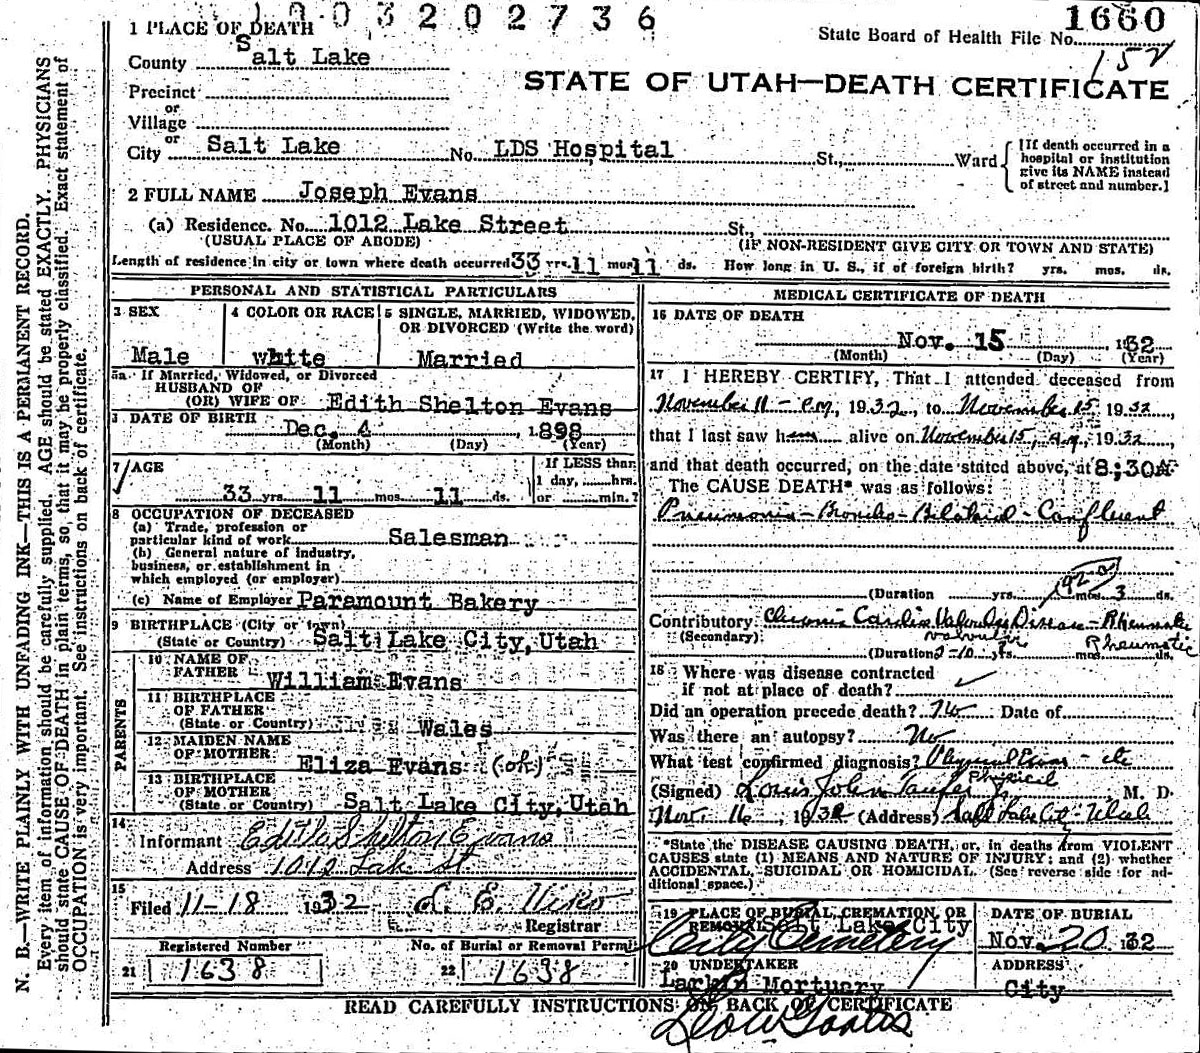 1003202736
1660
State Board of Health File No.
152
1 PLACE OF DEATH
County Salt Lake
STATE OF UTAH—DEATH CERTIFICATE
Precinct
or
Village
or
City Salt Lake No. LDS Hospital St., Ward
[If death occurred in a
hospital or institution
give its NAME instead
of street and number.]
2 FULL NAME Joseph Evans
(a) Residence. No. 1012 Lake Street St.,
(USUAL PLACE OF ABODE) (IF NON-RESIDENT GIVE CITY OR TOWN AND STATE)
Length of residence in city or town where death occurred 33 yrs. 11 mos. 11 ds. How long in U. S., if of foreign birth? yrs. mos. ds.
PERSONAL AND STATISTICAL PARTICULARS
3 SEX 4 COLOR OR RACE 5 SINGLE, MARRIED, WIDOWED,
OR DIVORCED (Write the word)
Male white Married
5a If Married, Widowed, or Divorced
HUSBAND OF
(OR) WIFE OF Edith Shelton Evans
DATE OF BIRTH
Dec. 4 1898
(Month) (Day) (Year)
7 AGE If LESS than
1 day, hrs.
33 yrs. 11 mos. 11 ds. or min.?
8 OCCUPATION OF DECEASED
(a) Trade, profession or
particular kind of work Salesman
(b) General nature of industry,
business, or establishment in
which employed (or employer)
(c) Name of Employer Paramount Bakery
9 BIRTHPLACE (City or town)
(State or Country) Salt Lake City, Utah
PARENTS
10 NAME OF
FATHER William Evans
11 BIRTHPLACE
OF FATHER
(State or Country) Wales
12 MAIDEN NAME
OF MOTHER Eliza Evans (ok)
13 BIRTHPLACE
OF MOTHER
(State or Country) Salt Lake City, Utah
14
Informant Edith Shelton Evans
Address 1012 Lake St.
15
Filed 11-18 1932
Registrar
Registered Number No. of Burial or Removal Permit
21 1638 22 1638
MEDICAL CERTIFICATE OF DEATH
16 DATE OF DEATH
Nov. 15 1932
(Month) (Day) (Year)
17 I HEREBY CERTIFY, That I attended deceased from
November 11 - P.M., 1932, to November 15, 1932,
that I last saw him alive on November 15, a.m., 1932,
and that death occurred, on the date stated above, at 8:30A
The CAUSE DEATH* was as follows:
Pneumonia - Broncho - Bilateral - Confluent
(Duration yrs. mos. 3 ds.
Contributory Chronic Cardio Valvular Disease - Rheumatic
(Secondary) valvular Rheumatic
(Duration 2-10 yrs. mos. ds.
18 Where was disease contracted
if not at place of death?
Did an operation precede death? No Date of
Was there an autopsy? No
What test confirmed diagnosis? Physical Exam - etc
Physical
(Signed) Louis John Taufer M. D.
Nov. 16, 1932 (Address) Salt Lake City - Utah
*State the DISEASE CAUSING DEATH, or, in deaths from VIOLENT
CAUSES state (1) MEANS AND NATURE OF INJURY; and (2) whether
ACCIDENTAL, SUICIDAL OR HOMICIDAL. (See reverse side for ad-
ditional space.)
19 PLACE OF BURIAL, CREMATION, OR DATE OF BURIAL
REMOVAL Salt Lake City
City Cemetery Nov. 20 1932
20 UNDERTAKER ADDRESS
Larkin Mortuary City
READ CAREFULLY INSTRUCTIONS ON BACK OF CERTIFICATE
N. B.—WRITE PLAINLY WITH UNFADING INK—THIS IS A PERMANENT RECORD.
Every item of information should be carefully supplied. AGE should be stated EXACTLY. PHYSICIANS
should state CAUSE OF DEATH in plain terms, so that it may be properly classified. Exact statement of
OCCUPATION is very important. See instructions on back of certificate.